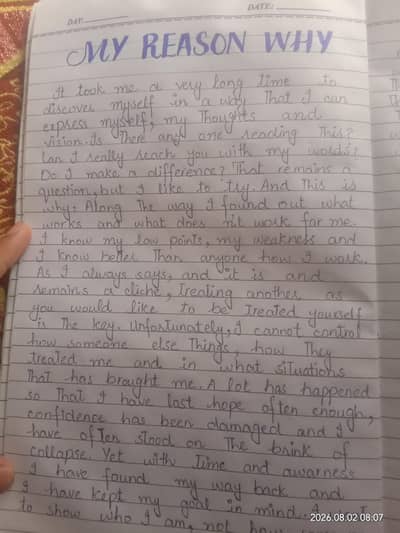 DAY
DATE:
MY REASON WHY
It took me a very long time to
discover myself in a way That I can
express myself, my Thoughts and
vision. Is There any one reading This?
Can I really reach you with my words?
Do I make a difference? That remains a
question, but I like to try. And This is
why. Along The way I found out what
works and what does nit work for me.
I know my low points, my weakness and
I know better Than anyone how I work.
As I always says, and it is and
remains a cliche, Treating another as
you would like to be Treated yourself
is The key. Unfortunately, I cannot control
how someone else Things, how They
treated me and in what situations
That has braught me. A lot has happened
so That I have lost hope often enough,
confidence has been damaged and I
have ofTen stood on The brink of
collapse. Yet with Time and awarness
I have found my way back and
I have kept my goal in mind.
to show who I am, not how
2026.08.02 08:07